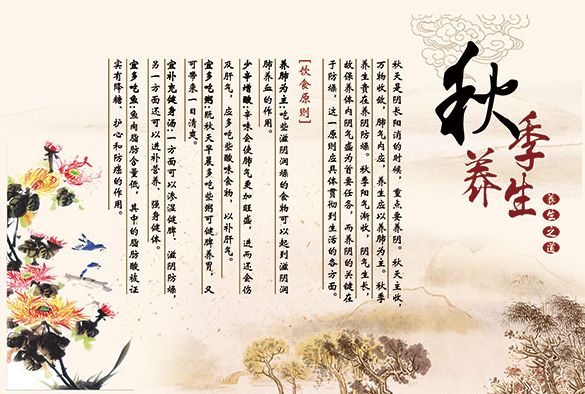 秋
季
养生
养生之道
秋天是阴长阳消的时候，重点要养阴。秋天主收，
万物收敛，肺气内应，养生应以养肺为主。秋季
养生贵在养阴防燥。秋季阳气渐收，阴气生长，
故保养体内阴气盛为首要任务，而养阴的关键在
于防燥，这一原则应具体贯彻到生活的各方面。
[饮食原则]
养肺为主:吃些滋阴润燥的食物可以起到滋阴润
肺养血的作用。
少辛增酸:辛味会使肺气更加旺盛，进而还会伤
及肝气，应多吃些酸味食物，以补肝气。
宜多吃粥:既秋天早晨多吃些粥可健脾养胃，又
可带来一日清爽。
宜补充健身汤:一方面可以渗湿健脾、滋阴防燥，
另一方面还可以进补营养、强身健体。
宜多吃鱼:鱼肉脂肪含量低，其中的脂肪酸被证
实有降糖、护心和防癌的作用。